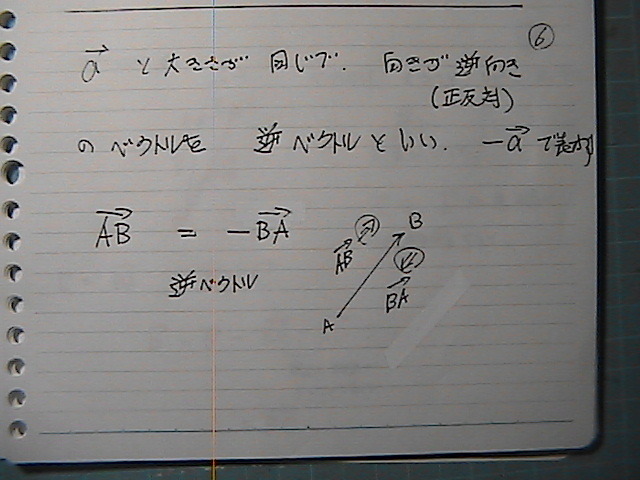 ⑥
→a と大きさが 同じで. 向きが 逆向き
(正反対)
のベクトルを 逆ベクトルといい. −→a で表す
→AB = −→BA
逆ベクトル
B
→AB
→BA
A